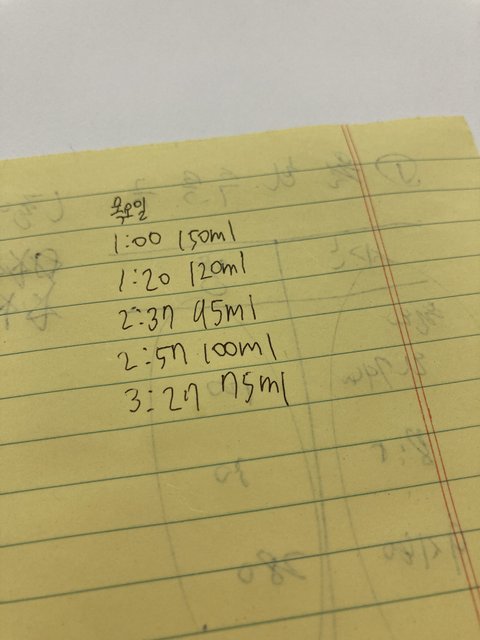 목요일
1:00 150ml
1:20 120ml
2:37 95ml
2:57 100ml
3:27 75ml